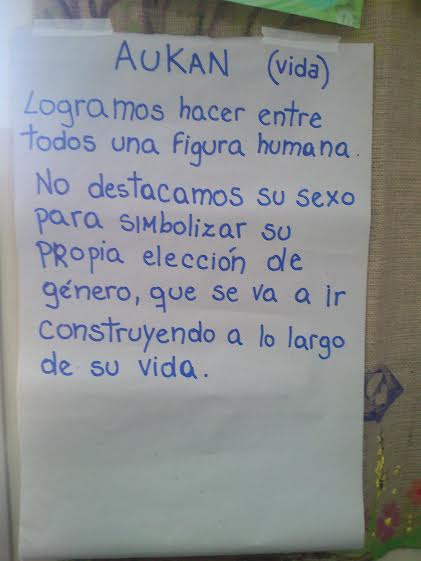 AUKAN (vida)
Logramos hacer entre
todos una figura humana.
No destacamos su sexo
para SIMbolizar su
PROpia elección de
género, que se va a ir
construyendo a lo largo
de su vida.